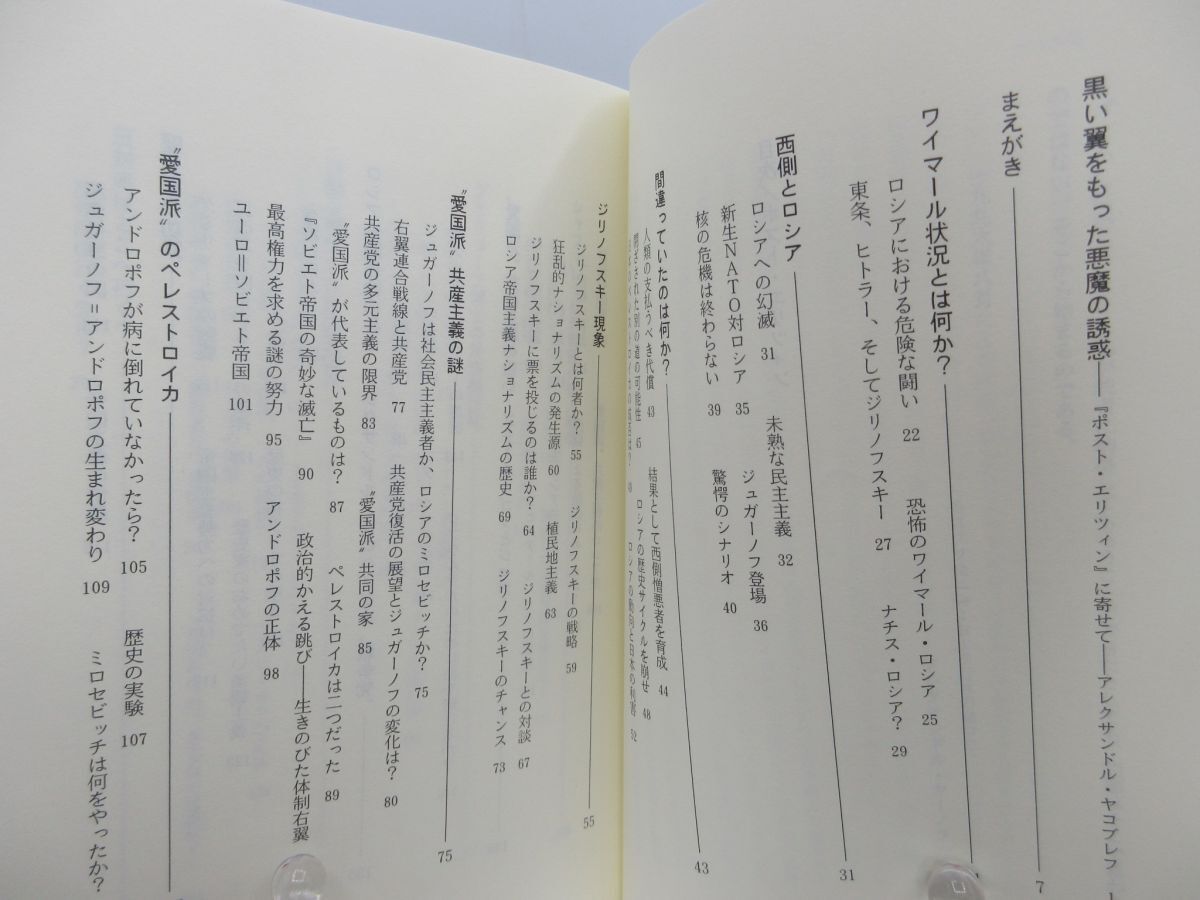 黒い翼をもった悪魔の誘惑――『ポスト・エリツィン』に寄せて――アレクサンドル・ヤコブレフ 1
まえがき 7
ワイマール状況とは何か?
ロシアにおける危険な闘い 22 恐怖のワイマール・ロシア 25
東条、ヒトラー、そしてジリノフスキー 27 ナチス・ロシア? 29
西側とロシア 31
ロシアへの幻滅 31 未熟な民主主義 32
新生NATO対ロシア 35 ジュガーノフ登場 36
核の危機は終わらない 39 驚愕のシナリオ 40
間違っていたのは何か? 43
人類の支払うべき代償 43 結果として西側憎悪者を育成 44
閉ざされた別の道の可能性 45 ロシアの歴史サイクルを崩せ 48
ロシアの動向と日本の利害 52
ジリノフスキー現象 55
ジリノフスキーとは何者か? 55 ジリノフスキーの戦略 59
狂乱的ナショナリズムの発生源 60 植民地主義 63
ジリノフスキーに票を投じるのは誰か? 64 ジリノフスキーとの対談 67
ロシア帝国主義ナショナリズムの歴史 69 ジリノフスキーのチャンス 73
〝愛国派〟共産主義の謎 75
ジュガーノフは社会民主主義者か、ロシアのミロセビッチか? 75
右翼連合戦線と共産党 77 共産党復活の展望とジュガーノフの変化は? 80
共産党の多元主義の限界 83 〝愛国派〟共同の家 85
〝愛国派〟が代表しているものは? 87 ペレストロイカは二つだった 89
『ソビエト帝国の奇妙な滅亡』 90 政治的かえる跳び――生きのびた体制右翼
最高権力を求める謎の努力 95 アンドロポフの正体 98
ユーロ=ソビエト帝国 101
〝愛国派〟のペレストロイカ
アンドロポフが病に倒れていなかったら? 105 歴史の実験 107
ジュガーノフ=アンドロポフの生まれ変わり 109 ミロセビッチは何をやったか?